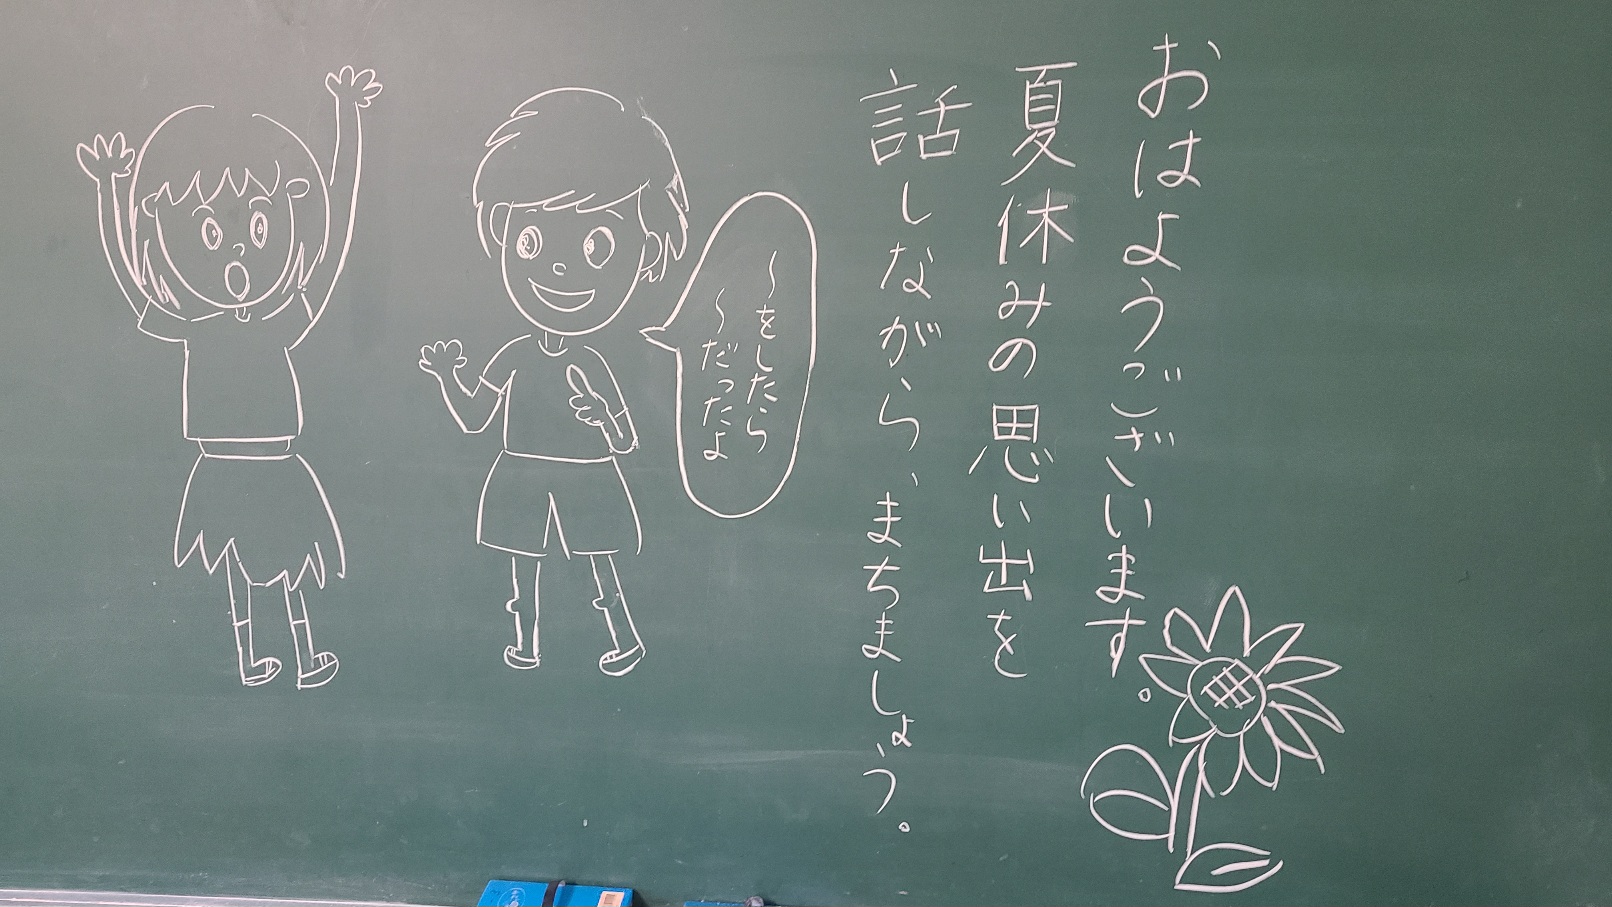 おはようございます。
夏休みの思い出を
話しながら、まちましょう。
〜をしたら
〜だったよ